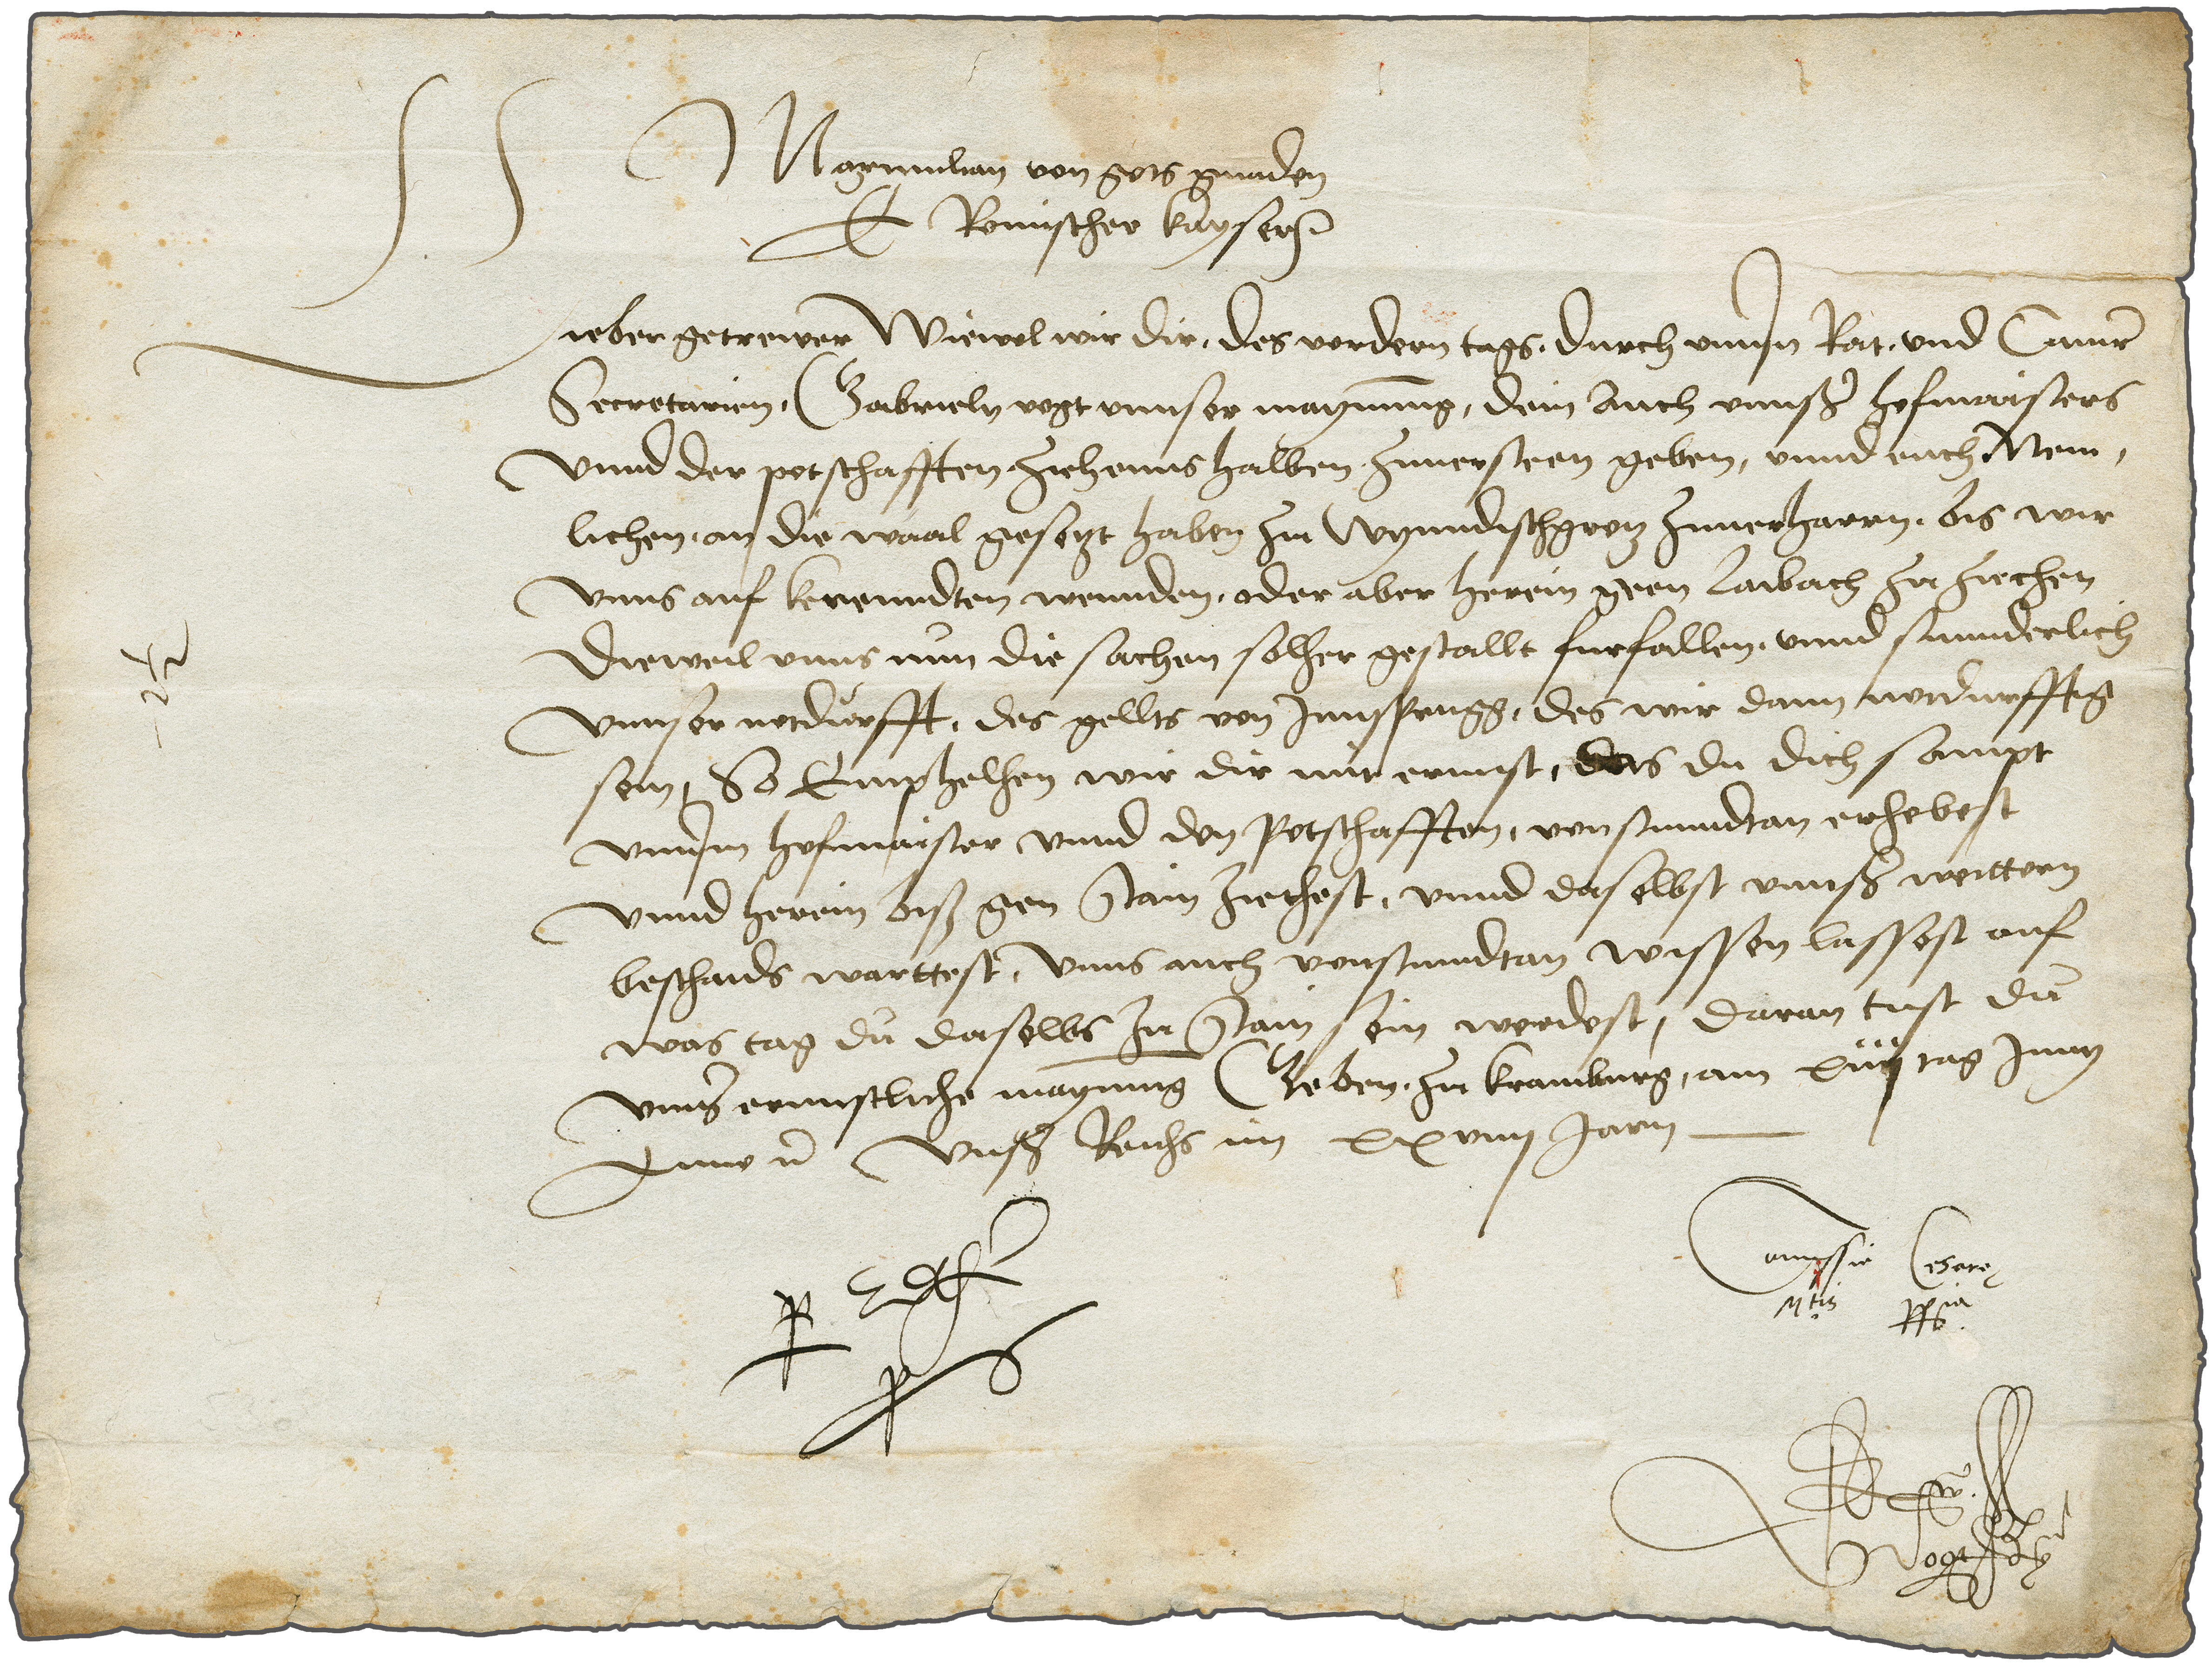 Maxmilian von gots gnaden
E Romischer kayser
Lieber getrewer Wiewol wir dir, des vordern tags, durch unnsn Rat, und Camr
Secretarien, Gabrieln vogt unnser maynung, dein auch unnsers hofmaisters
Unnd der potschafften ziehenns halben zuuersteen geben, unnd euch Nem,
lichen, an die waal gesetzt haben zu Wynndischgretz zuuerharrn, bis wir
Unns auf kerenndten wennden, oder aber herein geen Laibach zu ziechen
Dieweil unns nun die sachen solher gestallt furfallen, unnd sunnderlich
Unnser notdurfft, des gellts von Innsprugg, des wir dann notdurfftig
sein, So Emphelhen wir dir mit ernnst, das du dich sampt
unnsm hofmaister unnd den Potschafften, von stunndtan erhebest
Unnd herein bis gen Stain ziechest, unnd daselbst unnsers weittern
beschaids warttest, Unns auch von stunndtan wissen lassest auf
was tag du daselbs zu Stain sein werdest, daran tust du
unnser ernnstliche maynung Geben zu Krainburg, am tag Juny
Anno Unsers Reichs im xxviiij Jarn
p
ps
Comissio Cesaree
Mtis ppia
Vogt